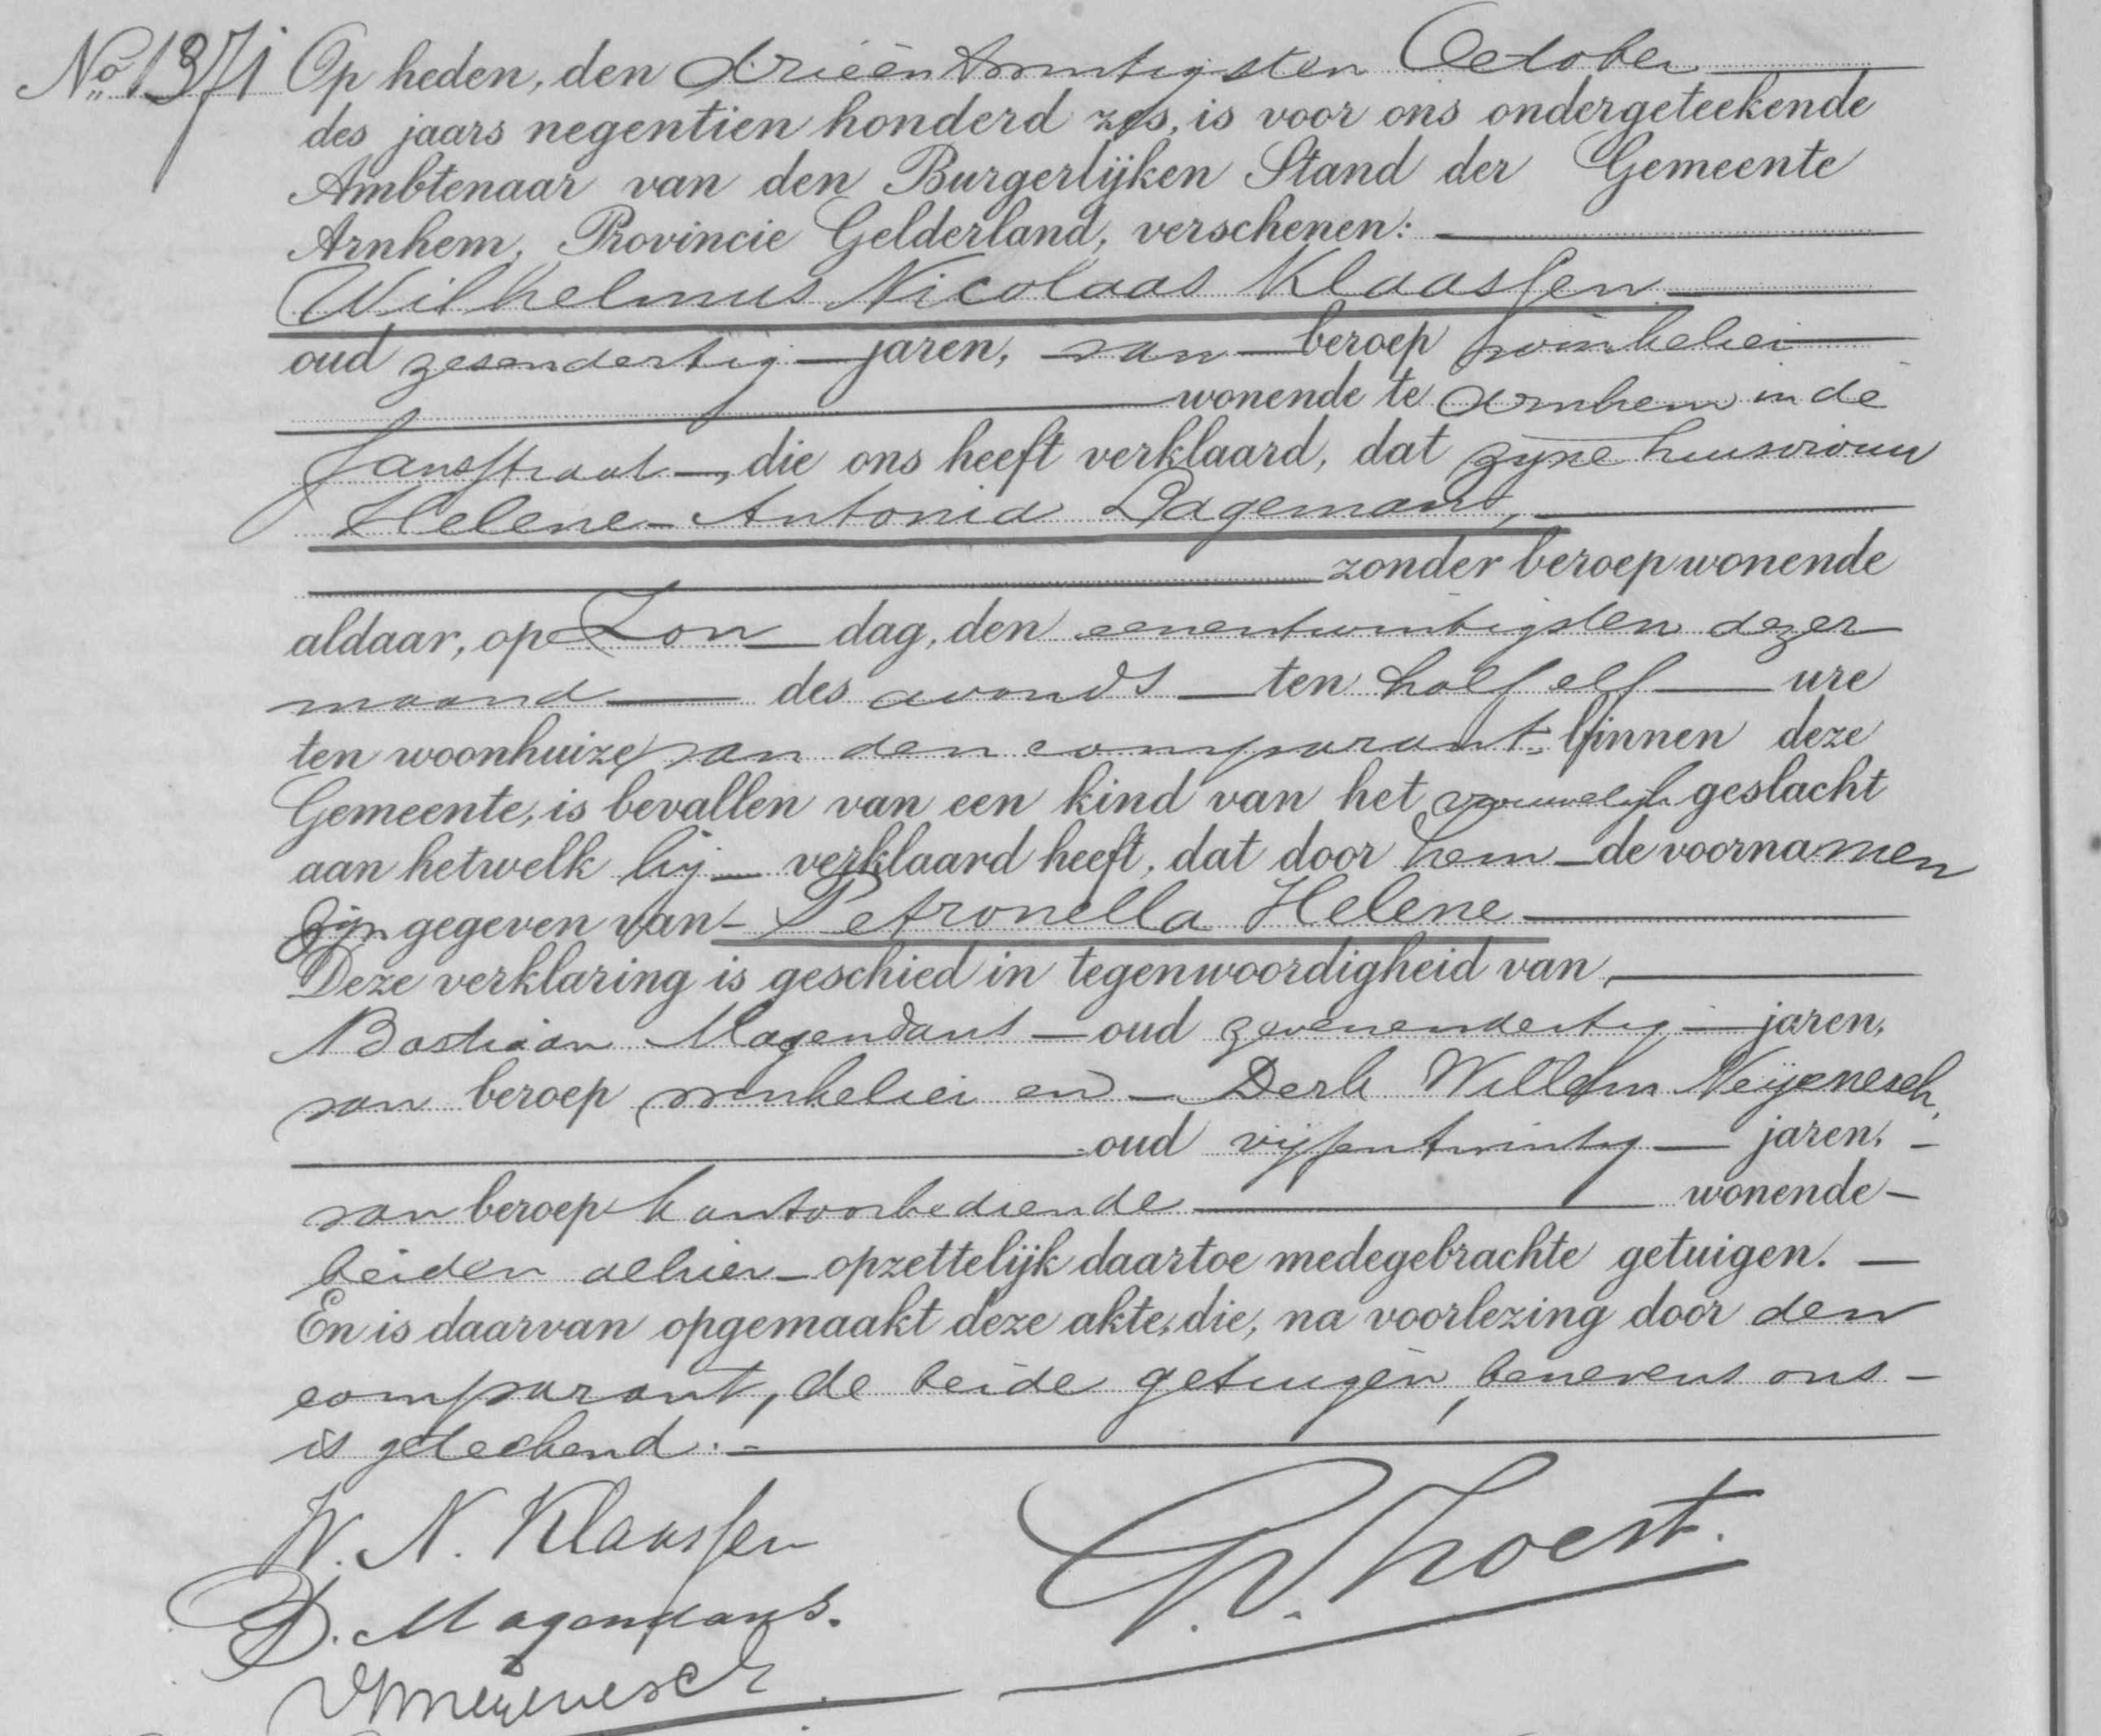 No 1371 Op heden, den drieëntwintigsten October
des jaars negentien honderd zes, is voor ons ondergeteekende
Ambtenaar van den Burgerlijken Stand der Gemeente
Arnhem, Provincie Gelderland, verschenen:
Wilhelmus Nicolaas Klaassen
oud zesendertig jaren, van beroep winkelier
wonende te Arnhem in de
Jansstraat, die ons heeft verklaard, dat zijne huisvrouw
Helene Antonia Dagemans,
zonder beroep wonende
aldaar, op Zondag, den eenentwintigsten dezer
maand des avonds ten half elf ure
ten woonhuize van den comparant binnen deze
Gemeente, is bevallen van een kind van het vrouwelijk geslacht
aan hetwelk hij verklaard heeft, dat door hem de voornamen
zijn gegeven van Petronella Helene
Deze verklaring is geschied in tegenwoordigheid van
Bastiaan Magendans oud zevenendertig jaren,
van beroep winkelier en Derk Willem Neijenesch,
oud vijfentwintig jaren,
van beroep kantoorbediende wonende
beiden alhier opzettelijk daartoe medegebrachte getuigen.
En is daarvan opgemaakt deze akte, die, na voorlezing door den
comparant, de beide getuigen, benevens ons
is geteekend.
W. N. Klaassen
B. Magendans.
DWNeijenesch